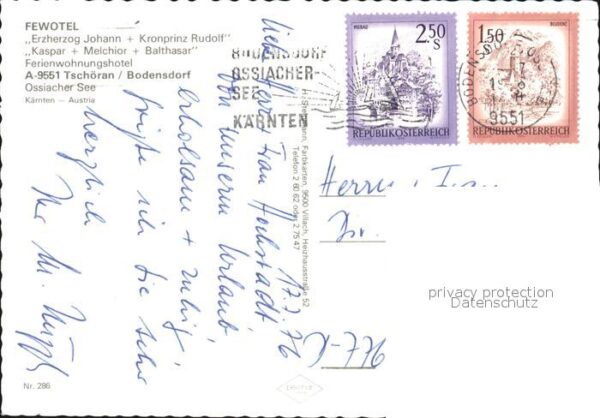 FEWOTEL
„Erzherzog Johann + Kronprinz Rudolf“
„Kaspar + Melchior + Balthasar“
Ferienwohnungshotel
A-9551 Tschöran / Bodensdorf
Ossiacher See
Kärnten – Austria
BODENSDORF
OSSIACHER-
SEE
KÄRNTEN
2.50
S
REPUBLIK ÖSTERREICH
1.50
BLUDENZ
REPUBLIK ÖSTERREICH
BODENSDORF
9551
Farbkarten, 9500 Villach, Heizhausstraße 52
17.7.76
Liebe Frau Hochstadt
Von unserem Urlaub
erholsam + ruhig,
grüße ich Sie sehr
herzlich
Ihr
Herrn
privacy protection
Datenschutz
Nr. 286